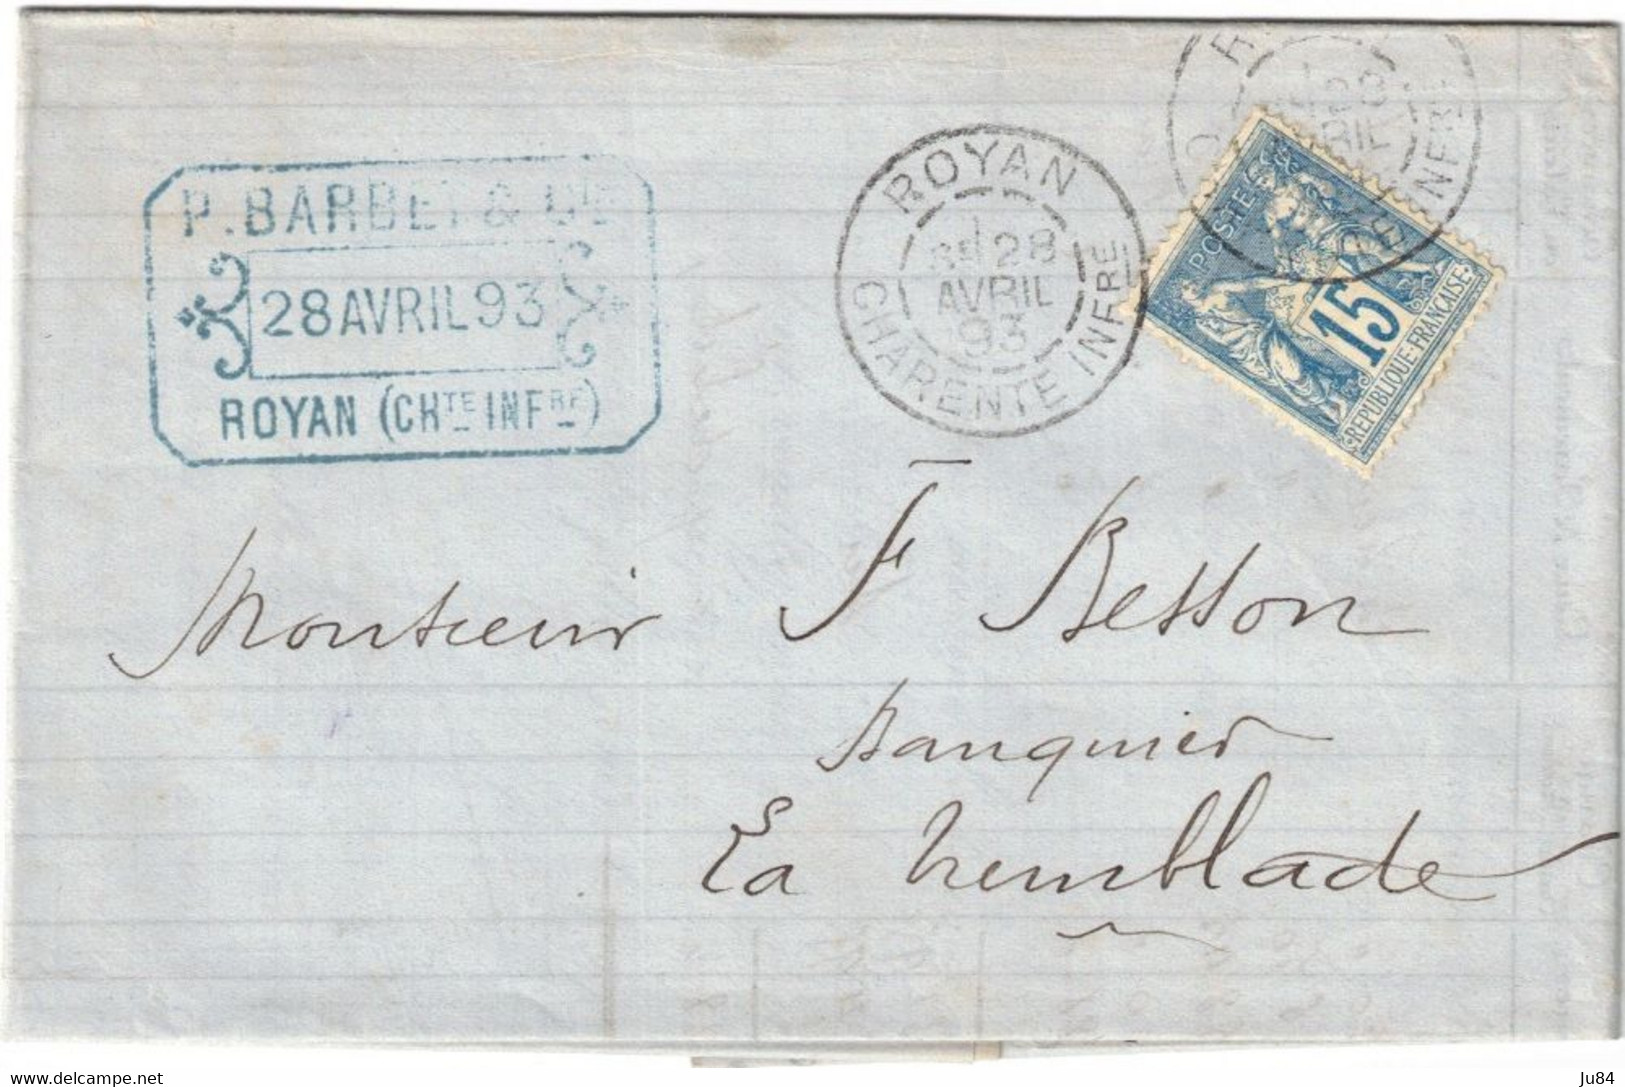 P. BARBET & Cie
28 AVRIL 93
ROYAN (CHTE INFRE)
ROYAN
28
AVRIL
93
CHARENTE INFRE
POSTES
15
REPUBLIQUE FRANÇAISE
Monsieur F Besson
Banquier
La Tremblade
www.delcampe.net
Ju84